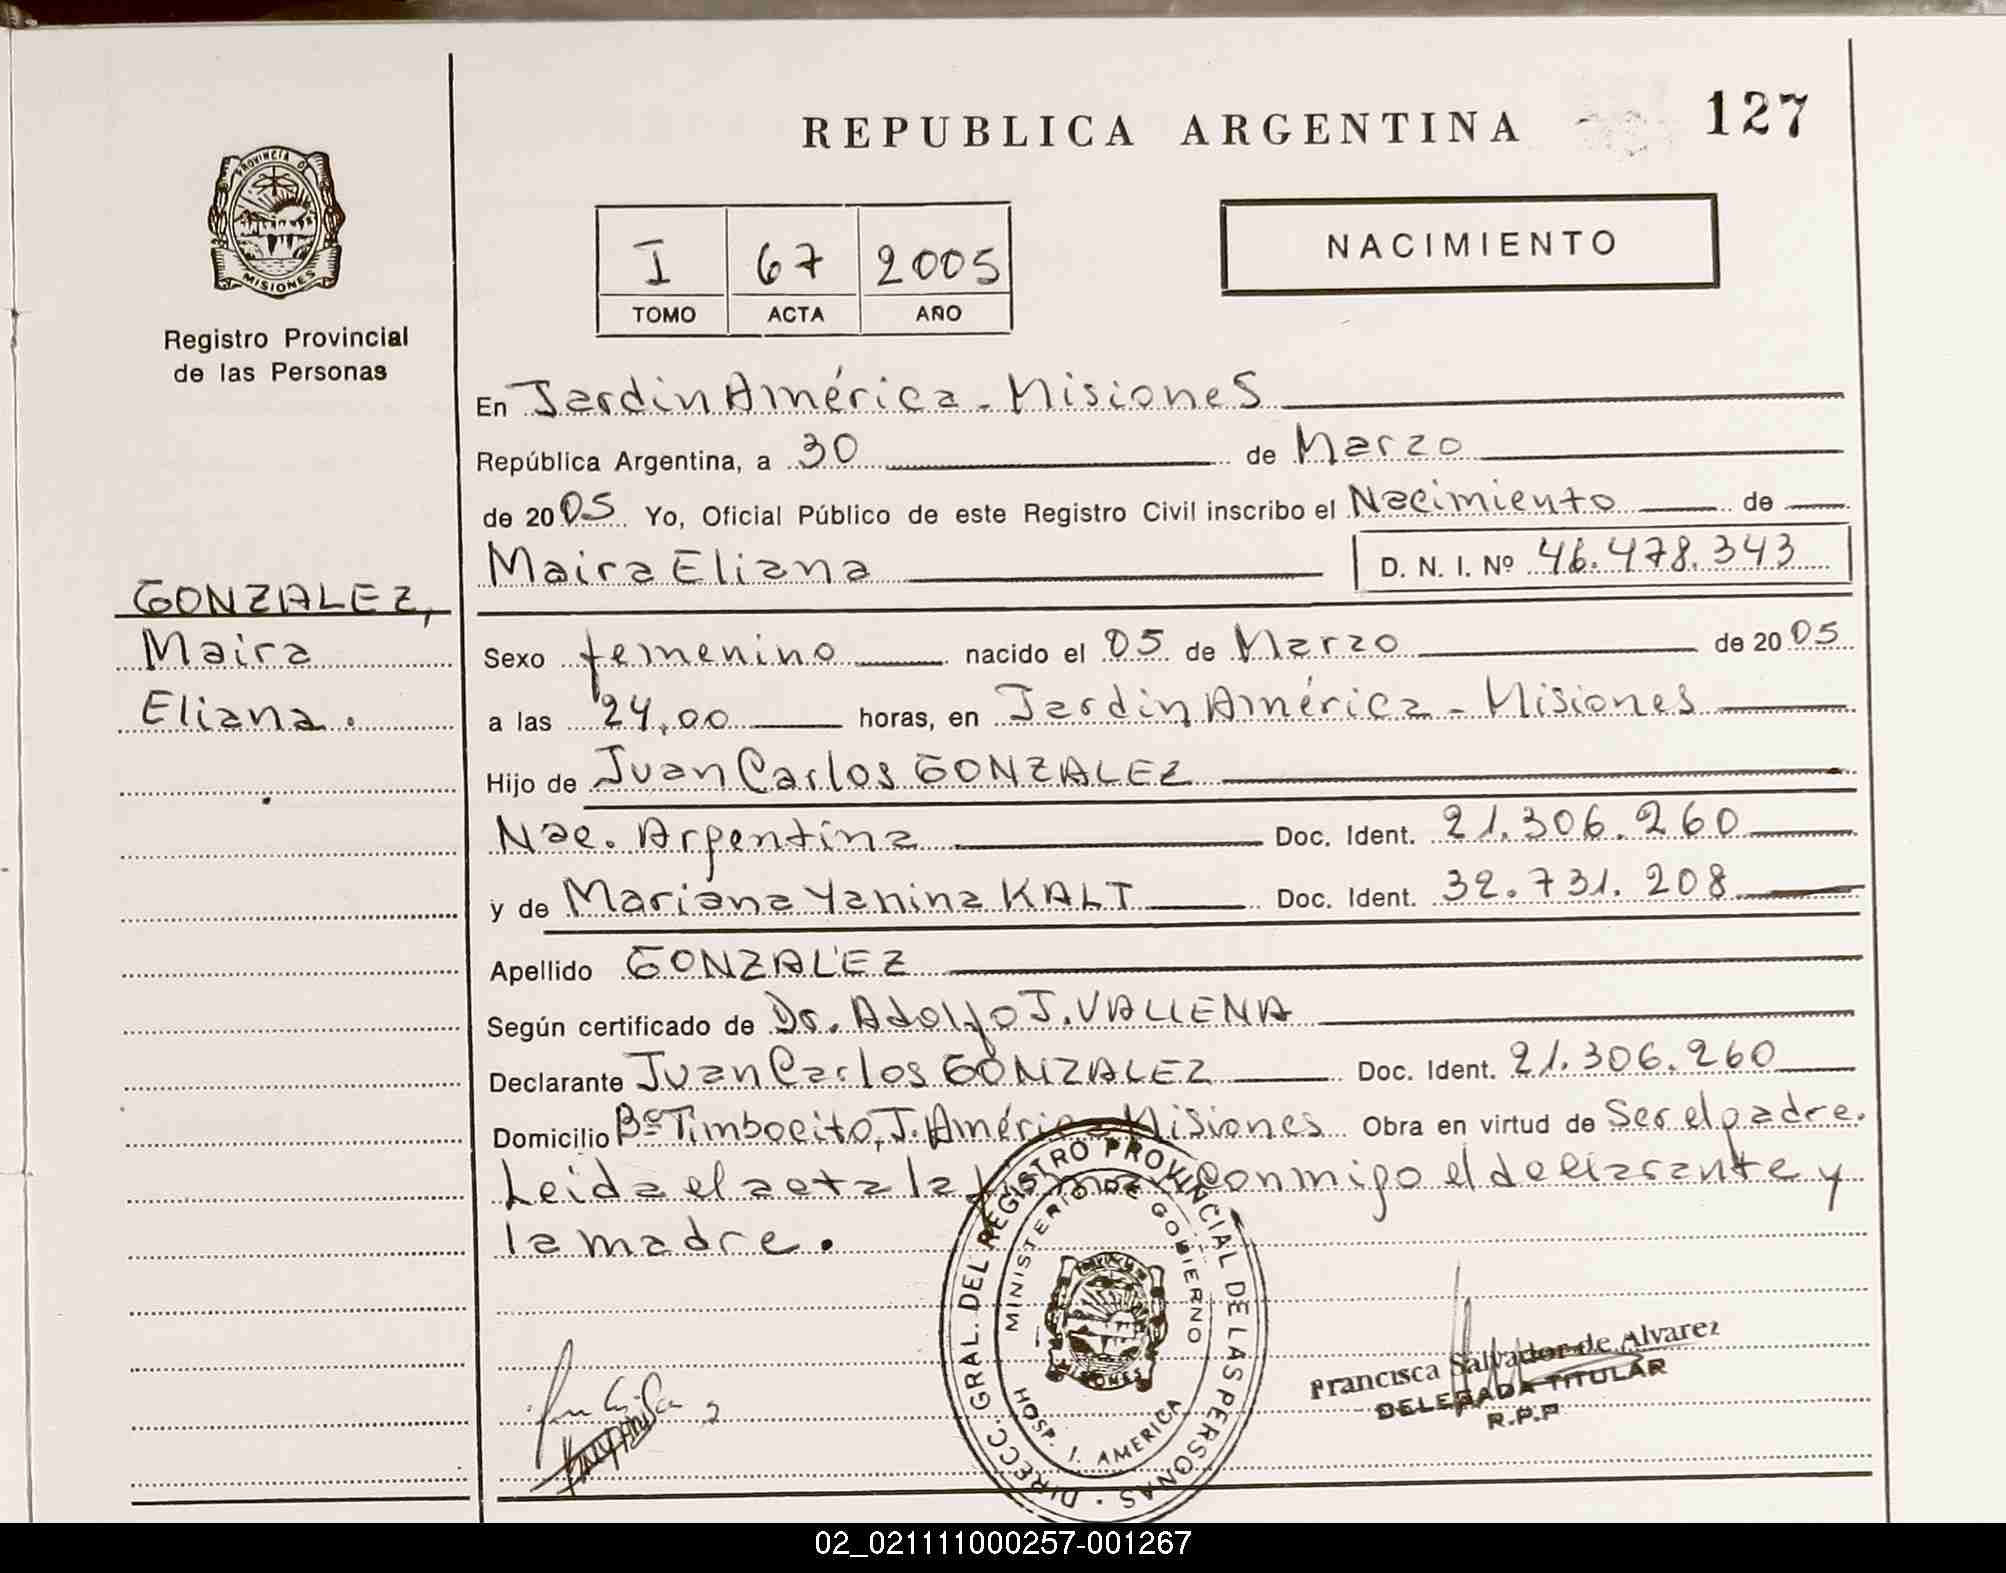 REPUBLICA ARGENTINA
127
PROVINCIA DE
MISIONES
Registro Provincial
de las Personas
I 67 2005
TOMO ACTA AÑO
NACIMIENTO
En Jardin América - Misiones
República Argentina, a 30 de Marzo
de 2005 Yo, Oficial Público de este Registro Civil inscribo el Nacimiento de
Maira Eliana D. N. I. Nº 46.478.343
GONZALEZ,
Maira
Eliana.
Sexo femenino nacido el 05 de Marzo de 2005
a las 24,00 horas, en Jardin América - Misiones
Hijo de Juan Carlos GONZALEZ
Nac. Argentina Doc. Ident. 21.306.260
y de Mariana Yanina KALT Doc. Ident. 32.731.208
Apellido GONZALEZ
Según certificado de Dr. Adolfo J. VALLENA
Declarante Juan Carlos GONZALEZ Doc. Ident. 21.306.260
Domicilio Bº Timbocito, J. América Misiones Obra en virtud de Ser el padre.
Leida el acta la conmigo el declarante y
la madre.
DIRECC. GRAL. DEL REGISTRO PROVINCIAL DE LAS PERSONAS
MINISTERIO DE GOBIERNO
HOSP. J. AMERICA
MISIONES
Francisca Salvador de Alvarez
DELEGADA TITULAR
R.P.P
02_021111000257-001267